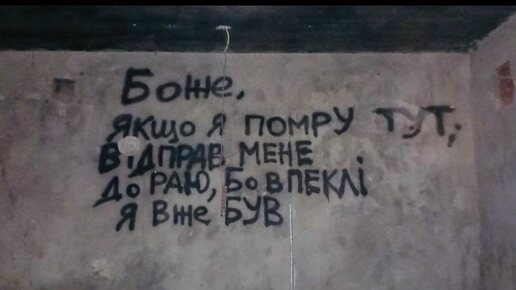 Боже,
якщо я помру тут,
відправ мене
до раю, бо в пеклі
я вже був